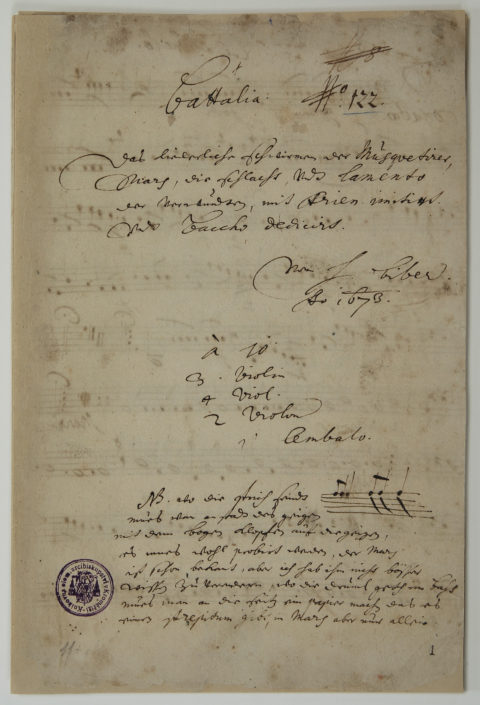 N° 122.
Battalia.
das liederliche schwirmen der Musquetirer,
Mars, die schlacht, Undt lamento
der Verwundten, mit Arien imitirt
Undt Baccho dedicirt.
Von H. Biber.
Ao 1673.
à 10
3 Violin
4 Viol.
2 Violon
1 Cembalo.
NB. wo die strich sindt
mus man anstadt des geigen
mit dem bogen klopfen auf die geigen,
es mus wohl probirt werden, der Mars
ist schon bekant, aber ich hab ihn nicht bösser
wissen zu verwenden, wo die druml geth im Bass
mus man an die seiten ein papier machen das es
einen , in Mars aber nur allein
1